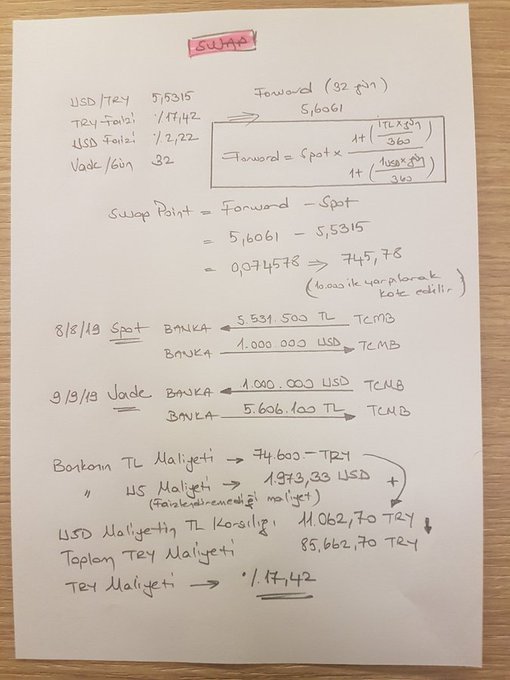 SWAP
USD/TRY 5,5315
TRY Faizi %17,42
USD Faizi %2,22
Vade/Gün 32
Forward (32 gün)
5,6061
Forward = Spot x 1+(1TL x gün/360) / 1+(1USD x gün/360)
Swap Point = Forward - Spot
= 5,6061 - 5,5315
= 0,074578 ⇒ 745,78
(10.000 ile çarpılarak
kote edilir)
8/8/19 Spot BANKA ← 5.531.500 TL TCMB
BANKA 1.000.000 USD → TCMB
9/9/19 Vade BANKA ← 1.000.000 USD TCMB
BANKA 5.606.100 TL → TCMB
Bankanın TL Maliyeti → 74.600.- TRY
" US Maliyeti → 1.973,33 USD +
(Faizlendiremediği maliyet)
USD Maliyetin TL Karşılığı 11.062,70 TRY ↓
Toplam TRY Maliyeti 85,662,70 TRY
TRY Maliyeti → %17,42